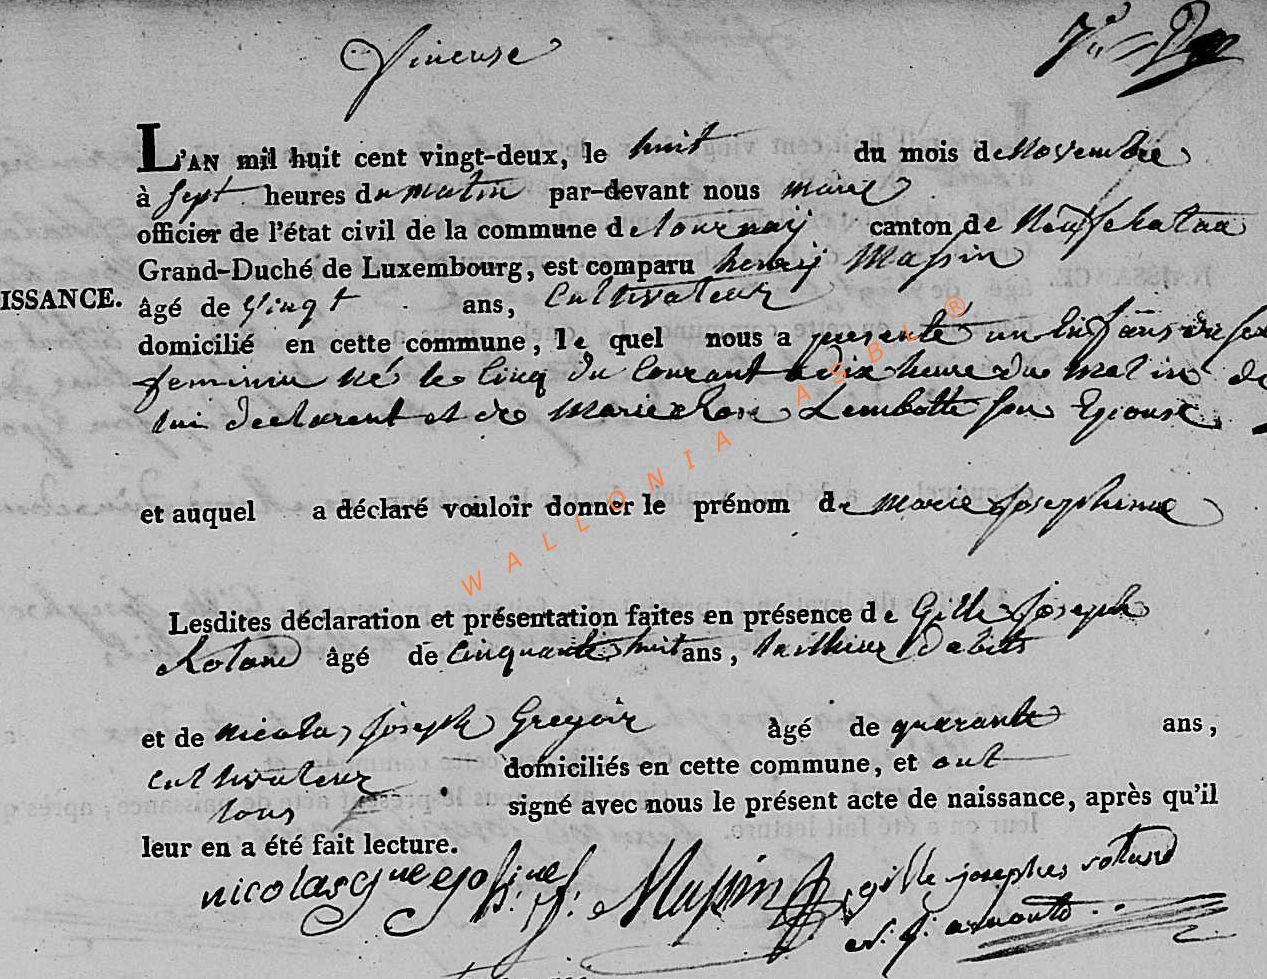 Vineuse 7.e
L'AN mil huit cent vingt-deux, le huit du mois de Novembre
à Sept heures du matin par-devant nous maire
officier de l'état civil de la commune de tournay canton de Neufchatau
Grand-Duché de Luxembourg, est comparu henrÿ Massin
ISSANCE. âgé de vingt ans, Cultivateur
domicilié en cette commune, le quel nous a presenté un Enfans du sex
feminin nés le Cinq du Courant a dix heure du Matin de
lui declarent et de Marie Rose Lembotte son Epouse
et auquel a déclaré vouloir donner le prénom de Marie Josephinne
Lesdites déclaration et présentation faites en présence de Gille Joseph
Roland âgé de Cinquante huit ans, tailleur d'abits
et de Nicolas Joseph Gregoir âgé de quarante ans,
Cultivateur domiciliés en cette commune, et ont
tous signé avec nous le présent acte de naissance, après qu'il
leur en a été fait lecture.
nicolas H. J. Massin gille josephes roland
N. J. arnould
WALLONIA ASBL ®